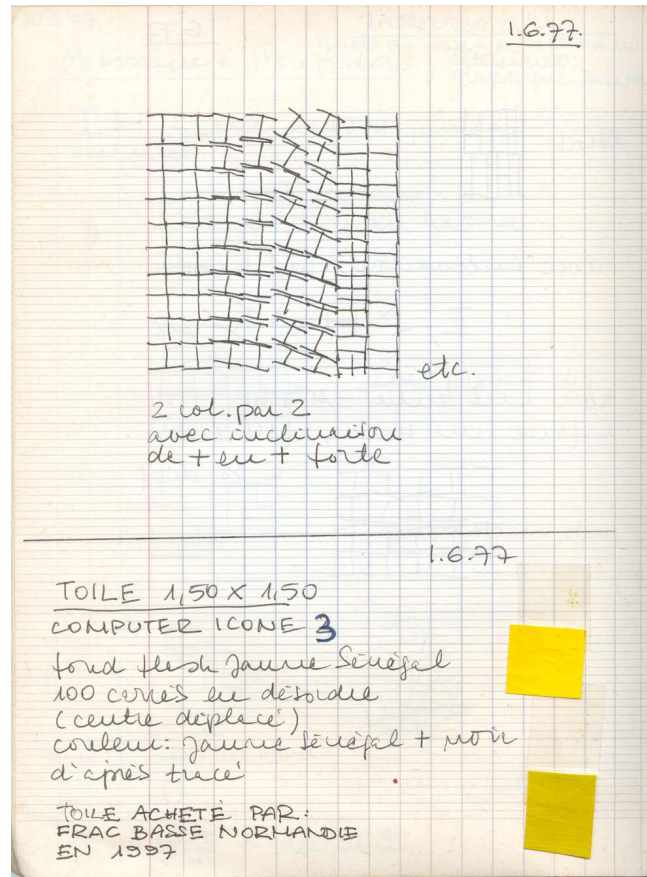 1.6.77.
etc.
2 col. par 2
avec inclinaison
de + en + forte
1.6.77
TOILE 1,50 x 1,50
COMPUTER ICONE 3
fond flesh Jaune Sénégal
100 carrés en désordre
(centre déplacé)
couleur: Jaune Sénégal + noir
d'après tracé
TOILE ACHETÉ PAR:
FRAC BASSE NORMANDIE
EN 1997